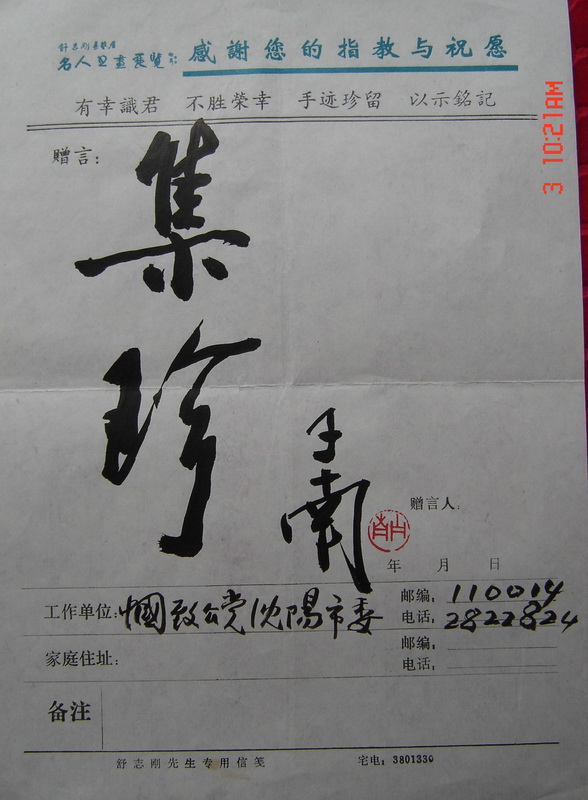 舒志刚
名人书画展览
感謝您的指教与祝愿
有幸識君 不胜榮幸 手迹珍留 以示銘記
赠言：
集
珍
子南
赠言人：
年 月 日
工作单位：中国致公党沈阳市委 邮编：110014
电话：2822824
家庭住址： 邮编：
电话：
备注
舒志刚先生专用信笺 宅电：3801330
3 10:21AM